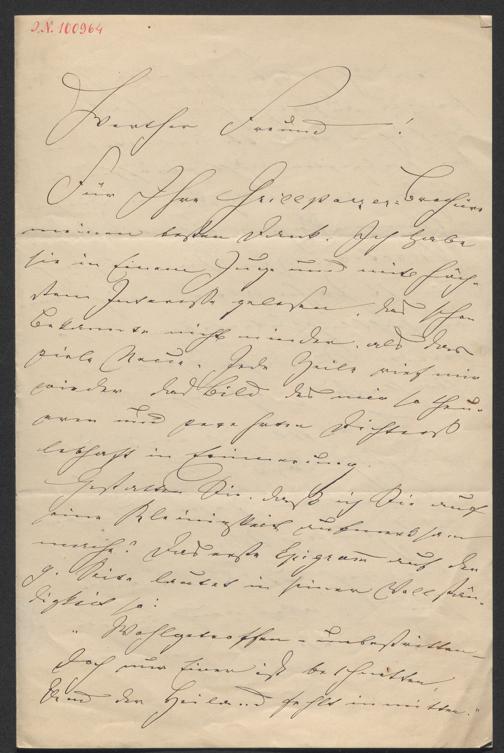 J.N. 100964
Werther Freund!
Für Ihre Grillparzer-Brochüre
meinen besten Dank. Ich habe
sie in Einem Zuge und mit höch-
stem Interesse gelesen, das schon
Bekannte nicht minder, als das
viele Neue. Jede Zeile rief mir
wieder das Bild des mir so theu-
eren und verehrten Dichters
lebhaft in Erinnerung.
Gestatten Sie, daß ich Sie auf
eine Kleinigkeit aufmerksam
mache? Das erste Epigram̄ auf der
9. Seite lautet in seiner Vollstän-
digkeit so:
"Wohlgetroffen – unbestritten –
Doch nur Einer ist beschnitten,
Und der Heiland fehlt inmitten."